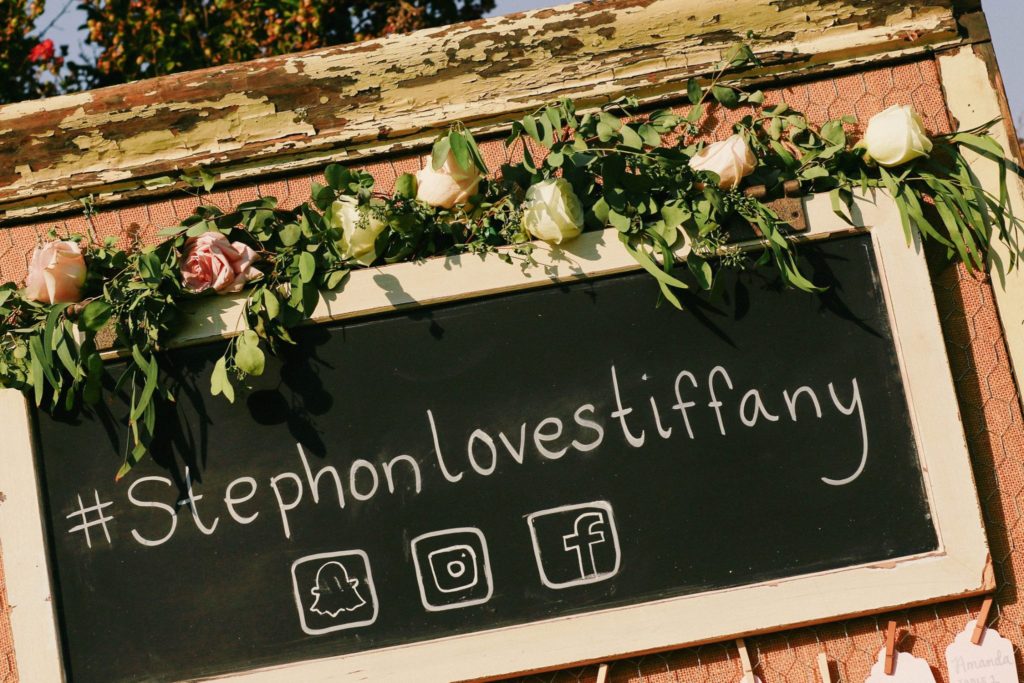 #Stephonlovestiffany
Amanda